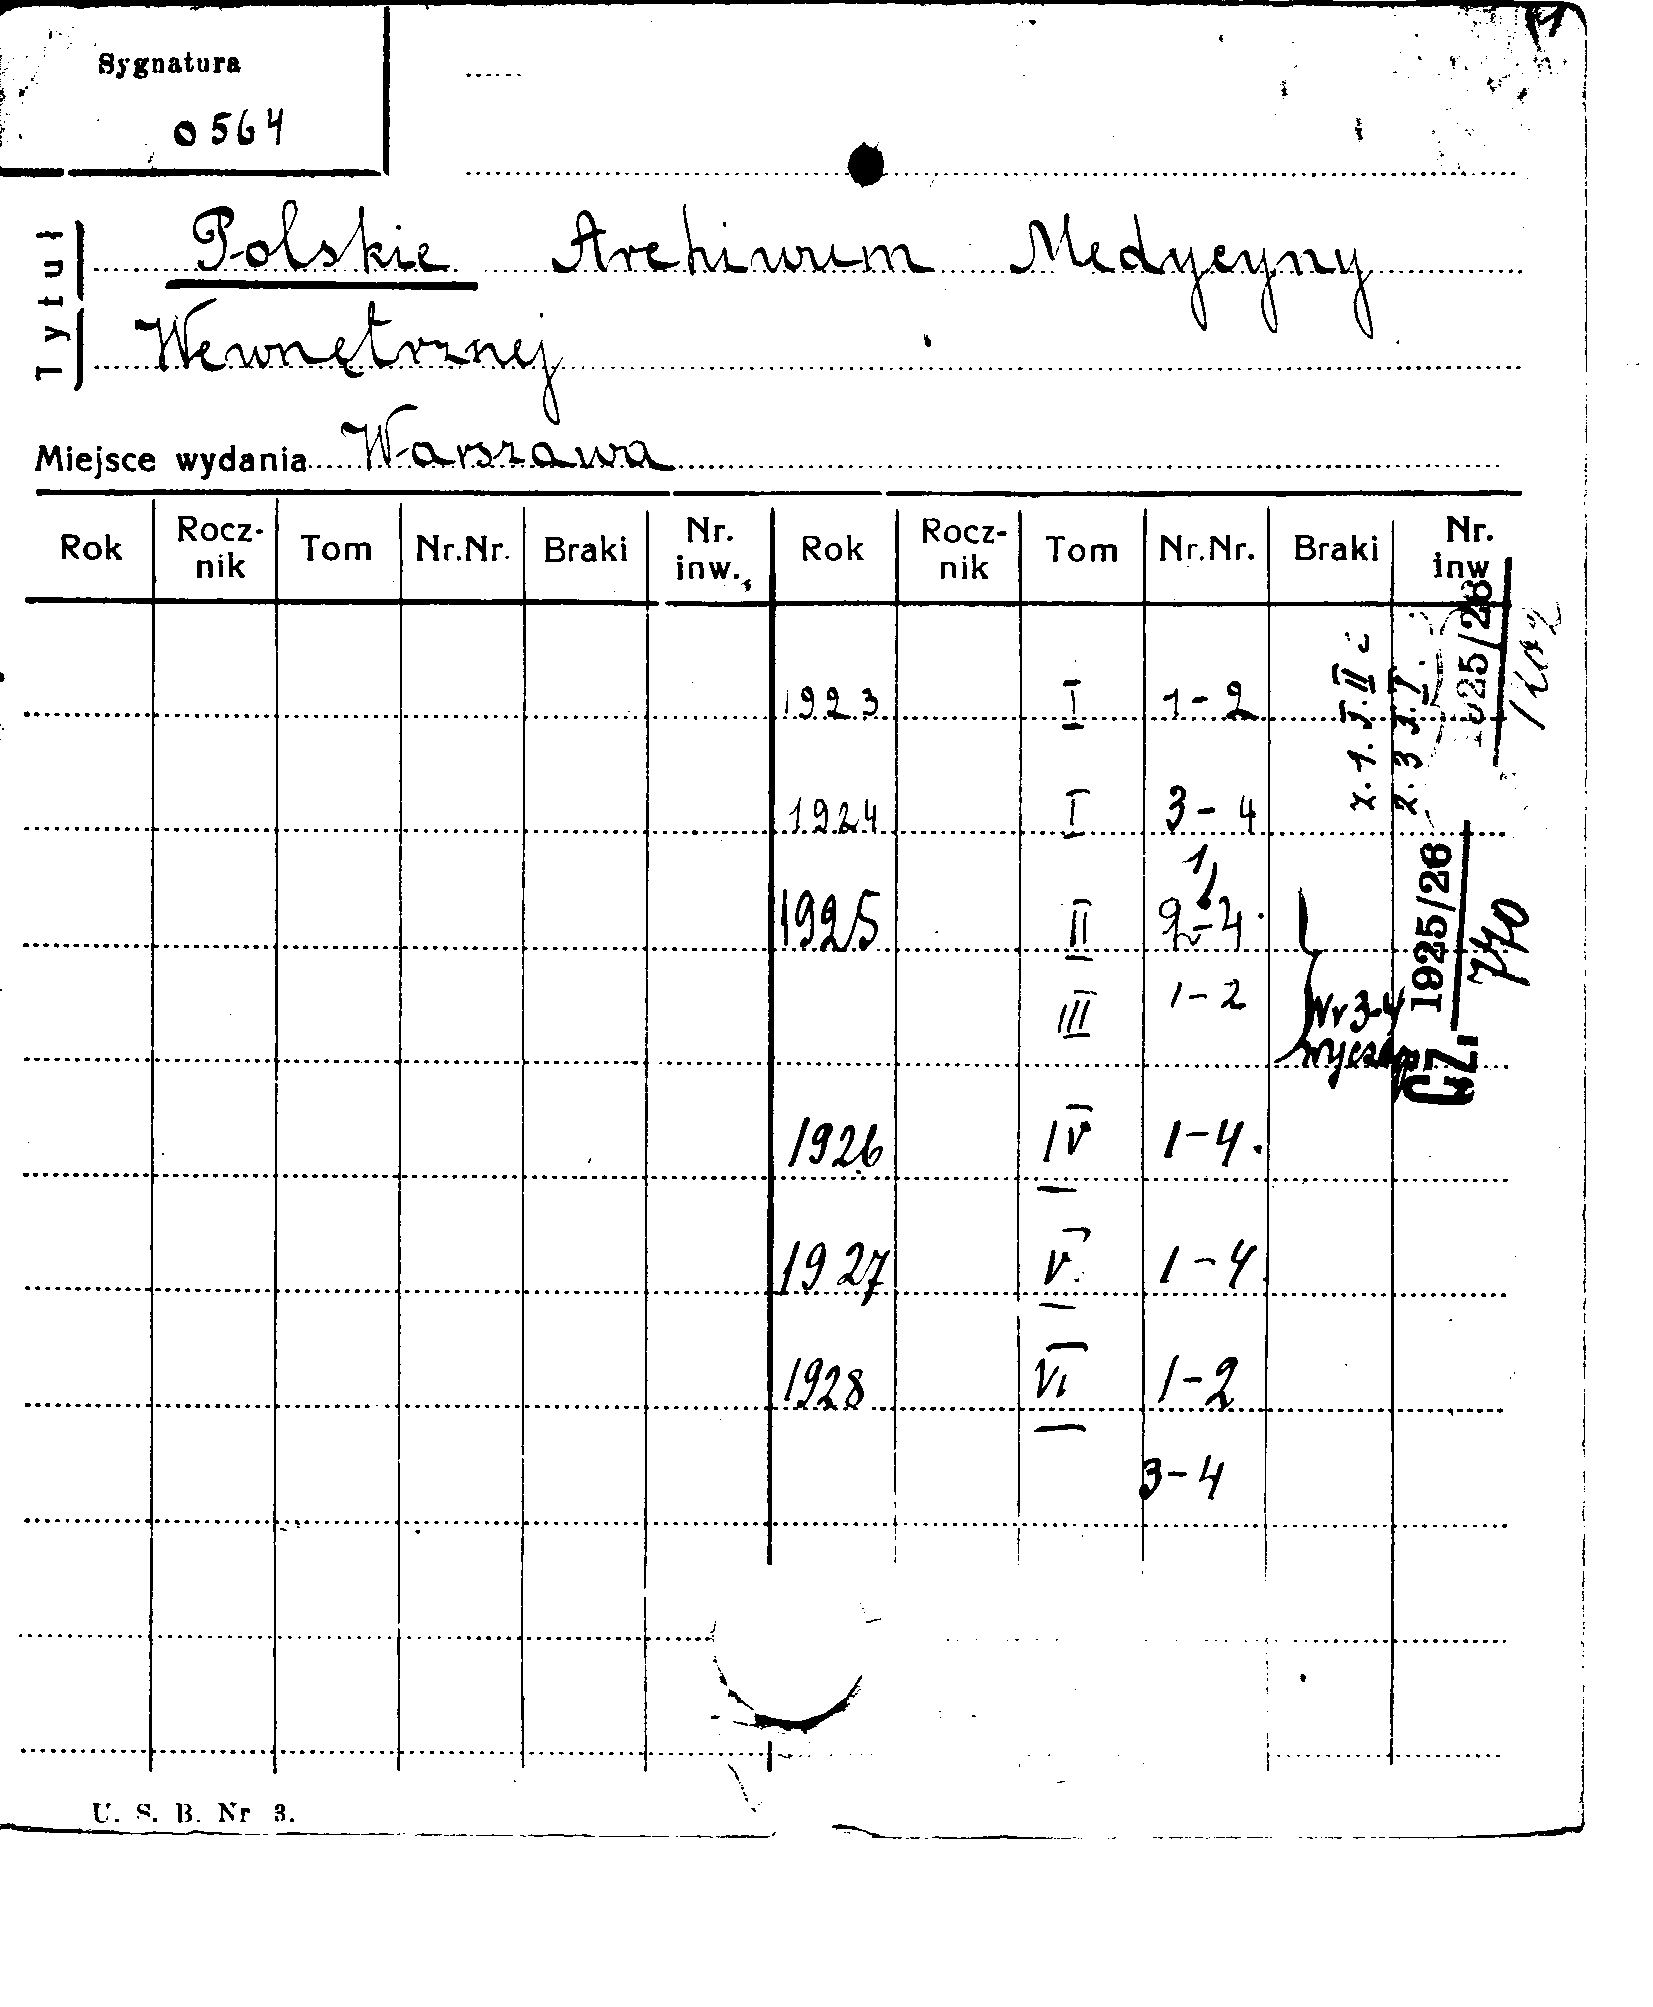 Sygnatura
o 564
Tytuł
Polskie Archiwum Medycyny
Wewnętrznej
Miejsce wydania Warszawa
Rok Rocz-nik Tom Nr.Nr. Braki Nr. inw. Rok Rocz-nik Tom Nr.Nr. Braki Nr. inw
1923 I 1-2
1924 I 3-4
1925 II 1, 2-4
III 1-2 Nr 3-4
1926 IV 1-4.
1927 V 1-4.
1928 VI 1-2
3-4
CZ. 1925/26
770
U. S. B. Nr 3.